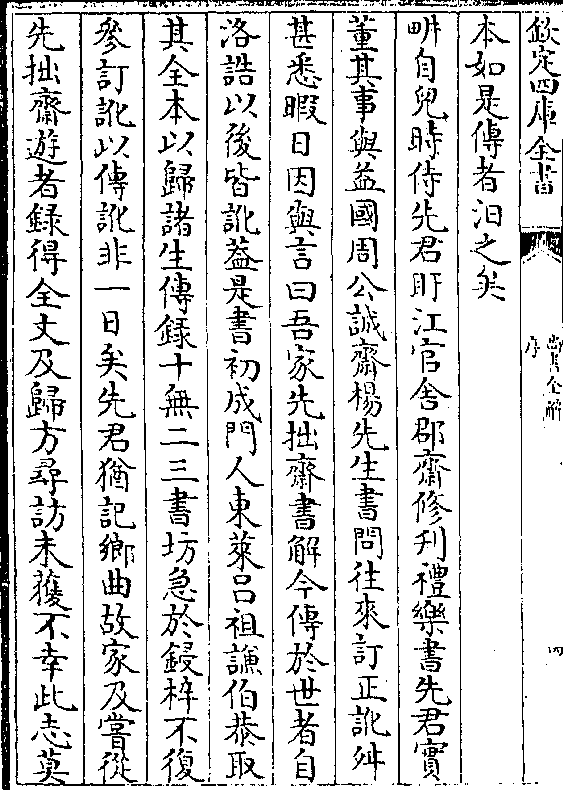 欽定四庫全書
尚書全解
序
四
本如是傳者汨之矣
畊自兒時侍先君盱江官舍郡齋修刋禮樂書先君實
董其事與益國周公誠齋楊先生書問往來訂正訛舛
甚悉暇日因與言曰吾家先拙齋書解今傳於世者自
洛誥以後皆訛葢是書初成門人東萊吕祖謙伯恭取
其全本以歸諸生傳録十無二三書坊急於鋟梓不復
參訂訛以傳訛非一日矣先君猶記鄉曲故家及嘗從
先拙齋遊者録得全文及歸方尋訪未獲不幸此志莫